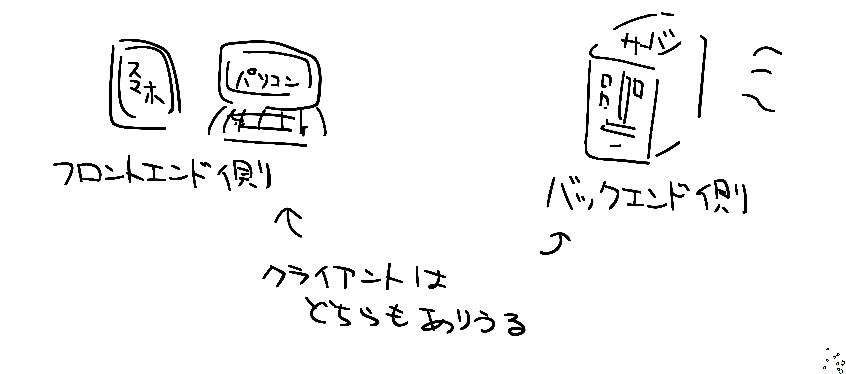 スマホ
パソコン
サーバ
フロントエンド側
バックエンド側
クライアントは
どちらもありうる